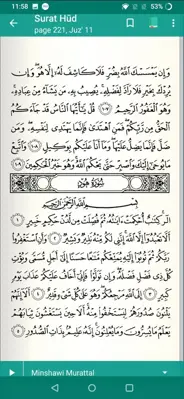 11:58
63
Surat Hūd
page 221, Juz' 11
وَإِن يَمْسَسْكَ ٱللَّهُ بِضُرٍّ فَلَا كَاشِفَ لَهُۥٓ إِلَّا هُوَ ۖ وَإِن
يُرِدْكَ بِخَيْرٍ فَلَا رَآدَّ لِفَضْلِهِۦ ۚ يُصِيبُ بِهِۦ مَن يَشَآءُ مِنْ عِبَادِهِۦ ۚ
وَهُوَ ٱلْغَفُورُ ٱلرَّحِيمُ ١٠٧ قُلْ يَٰٓأَيُّهَا ٱلنَّاسُ قَدْ جَآءَكُمُ
ٱلْحَقُّ مِن رَّبِّكُمْ ۖ فَمَنِ ٱهْتَدَىٰ فَإِنَّمَا يَهْتَدِى لِنَفْسِهِۦ ۖ وَمَن
ضَلَّ فَإِنَّمَا يَضِلُّ عَلَيْهَا ۖ وَمَآ أَنَا۠ عَلَيْكُم بِوَكِيلٍ ١٠٨ وَٱتَّبِعْ
مَا يُوحَىٰٓ إِلَيْكَ وَٱصْبِرْ حَتَّىٰ يَحْكُمَ ٱللَّهُ ۚ وَهُوَ خَيْرُ ٱلْحَٰكِمِينَ ١٠٩
سُورَةُ هُودٍ
بِسْمِ ٱللَّهِ ٱلرَّحْمَٰنِ ٱلرَّحِيمِ
الٓر ۚ كِتَٰبٌ أُحْكِمَتْ ءَايَٰتُهُۥ ثُمَّ فُصِّلَتْ مِن لَّدُنْ حَكِيمٍ خَبِيرٍ ١
أَلَّا تَعْبُدُوٓا۟ إِلَّا ٱللَّهَ ۚ إِنَّنِى لَكُم مِّنْهُ نَذِيرٌ وَبَشِيرٌ ٢ وَأَنِ ٱسْتَغْفِرُوا۟
رَبَّكُمْ ثُمَّ تُوبُوٓا۟ إِلَيْهِ يُمَتِّعْكُم مَّتَٰعًا حَسَنًا إِلَىٰٓ أَجَلٍ مُّسَمًّى وَيُؤْتِ
كُلَّ ذِى فَضْلٍ فَضْلَهُۥ ۖ وَإِن تَوَلَّوْا۟ فَإِنِّىٓ أَخَافُ عَلَيْكُمْ عَذَابَ يَوْمٍ
كَبِيرٍ ٣ إِلَى ٱللَّهِ مَرْجِعُكُمْ ۖ وَهُوَ عَلَىٰ كُلِّ شَىْءٍ قَدِيرٌ ٤ أَلَآ إِنَّهُمْ
يَثْنُونَ صُدُورَهُمْ لِيَسْتَخْفُوا۟ مِنْهُ ۚ أَلَا حِينَ يَسْتَغْشُونَ ثِيَابَهُمْ
يَعْلَمُ مَا يُسِرُّونَ وَمَا يُعْلِنُونَ ۚ إِنَّهُۥ عَلِيمٌۢ بِذَاتِ ٱلصُّدُورِ ٥
Minshawi Murattal